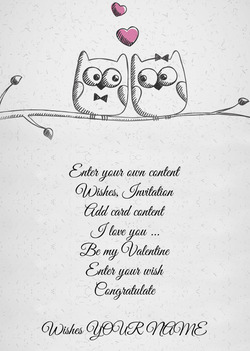 Enter your own content
Wishes, Invitation
Add card content
I love you ...
Be my Valentine
Enter your wish
Congratulate
Wishes YOUR NAME